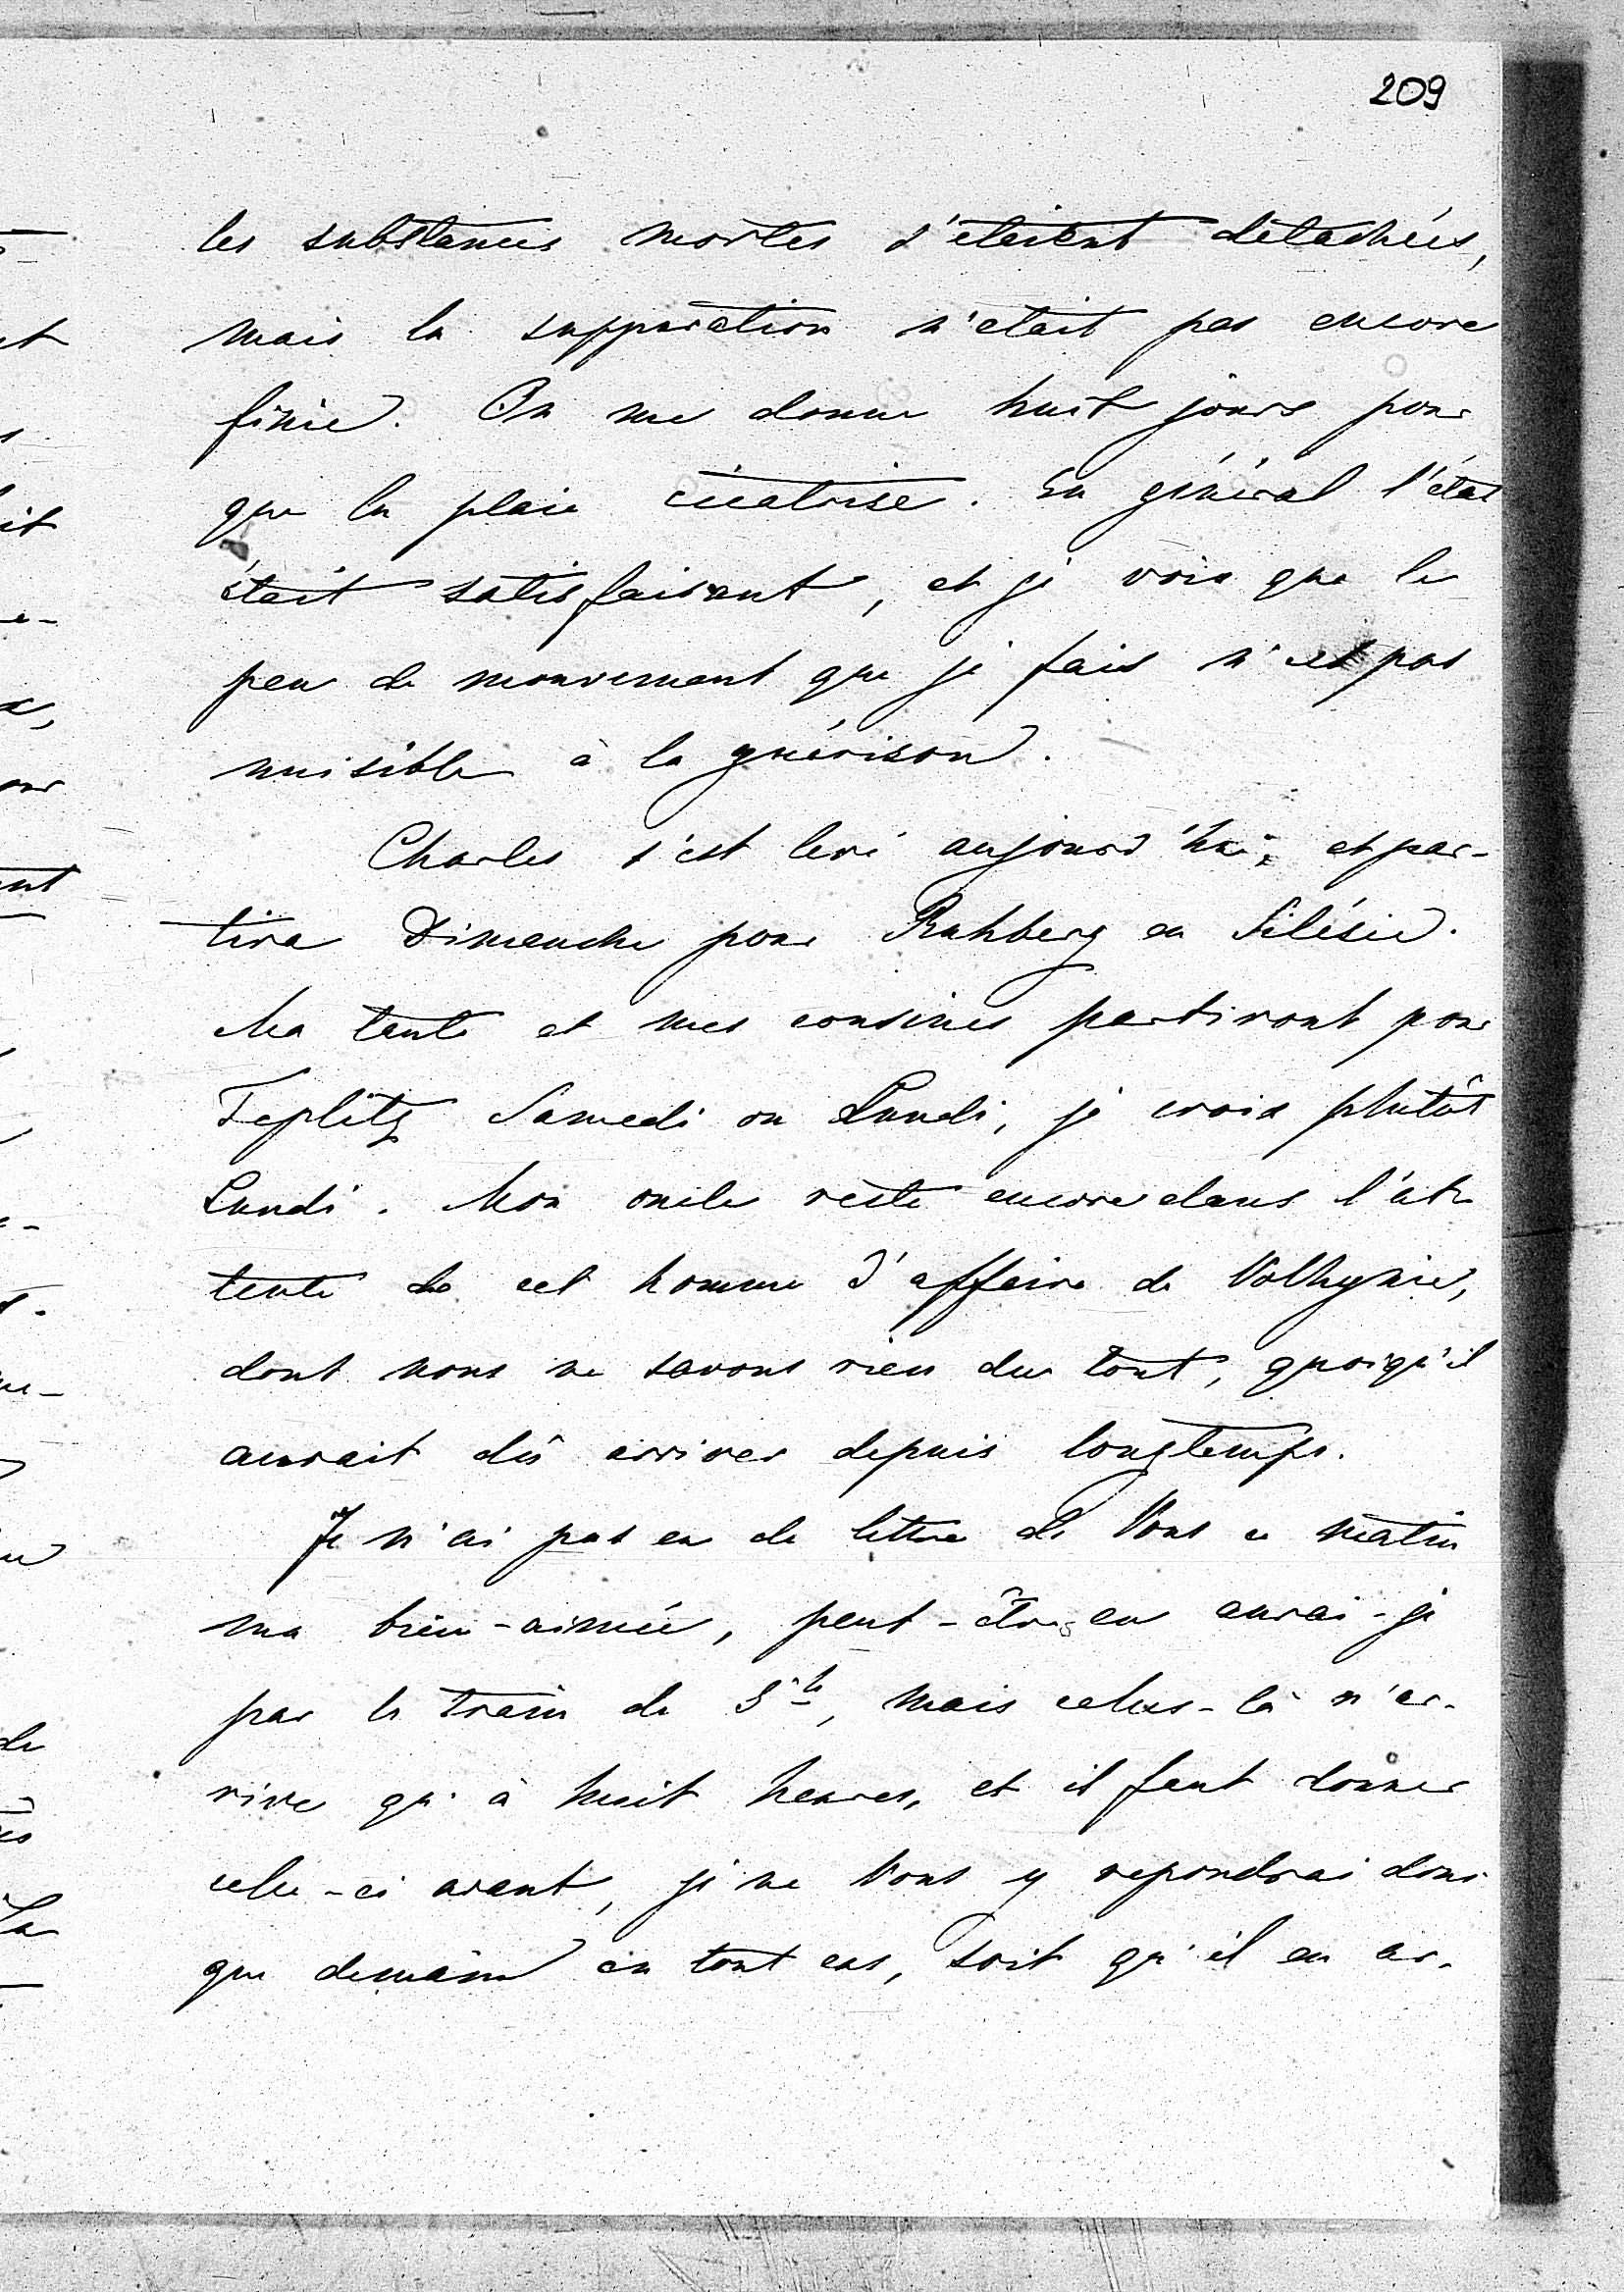 209
les substances mortes s'étaient détachées,
mais la suppuration n'etait pas encore
finie. On me donne huit jours pour
que la plaie cicatrise. En général l'état
était satisfaisant, et je vois que le
peu de mouvement que je fais n'est pas
nuisible à la guérison.
Charles s'est levé aujourd'hui, et par-
tira Dimanche pour Ruhberg en Silésie.
Ma tante et mes cousines partiront pour
Teplitz Samedi ou Lundi, je crois plutôt
Lundi. Mon oncle reste encore dans l'at-
tente de cet homme d'affaire de Volhynie,
dont nous ne savons rien du tout, quoiqu'il
aurait dû arriver depuis longtemps.
Je n'ai pas eu de lettre de Vous ce matin
ma bien-aimée, peut-être en aurai-je
par le train de 5 h, mais celui-là n'ar-
rive qu'à huit heures, et il faut donner
celui-ci avant, je ne Vous y repondrai donc
que demain en tout cas, soit qu'il en ar-